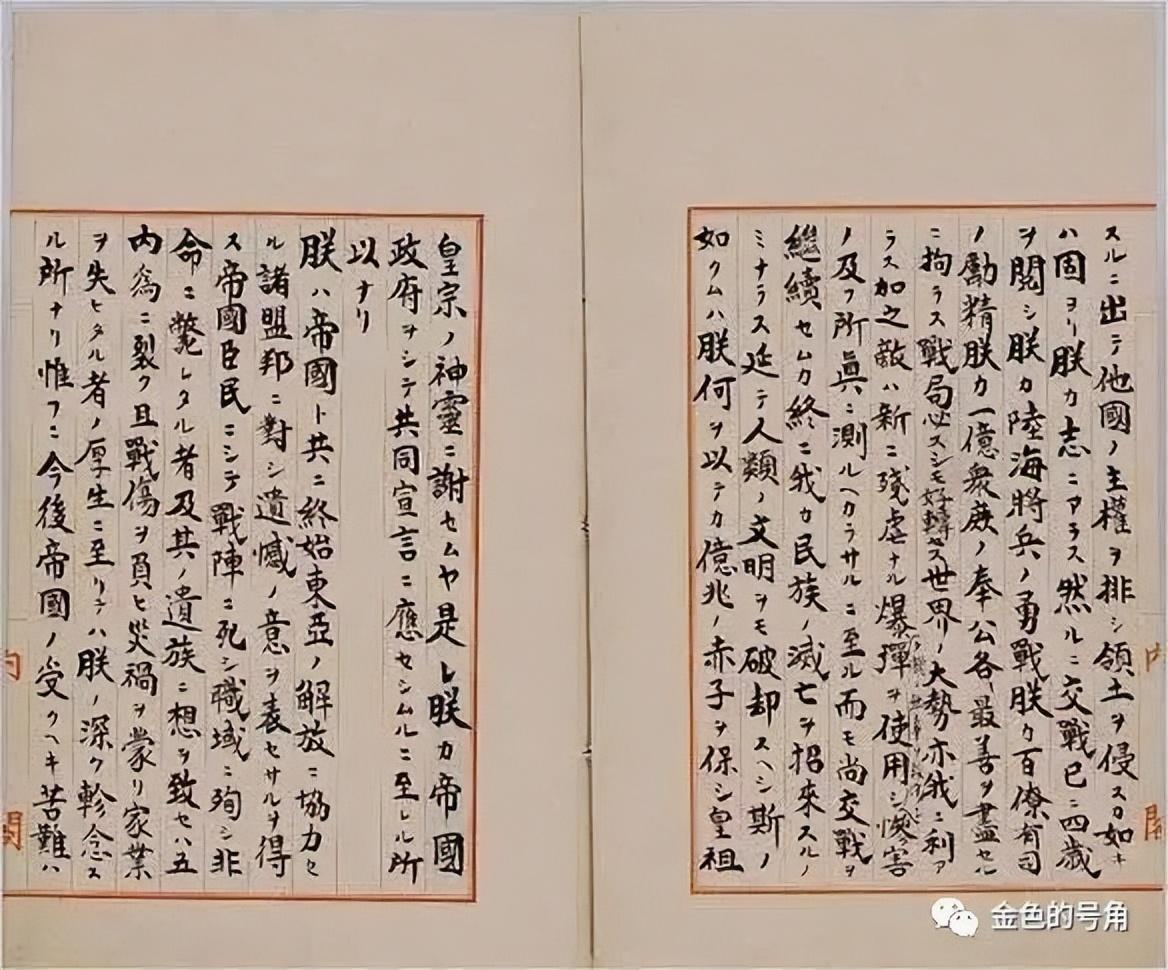 スルニ出テ他國ノ主權ヲ排シ領土ヲ侵スカ如キ
ハ固ヨリ朕カ志ニアラス然ルニ交戰已ニ四歳
ヲ閲シ朕カ陸海將兵ノ勇戰朕カ百僚有司
ノ勵精朕カ一億衆庶ノ奉公各〻最善ヲ盡セル
ニ拘ラス戰局必スシモ好轉セス世界ノ大勢亦我ニ利ア
ラス加之敵ハ新ニ殘虐ナル爆彈ヲ使用シ惨害
ノ及フ所眞ニ測ルヘカラサルニ至ル而モ尚交戰ヲ
繼續セムカ終ニ我カ民族ノ滅亡ヲ招來スルノ
ミナラス延テ人類ノ文明ヲモ破却スヘシ斯ノ
如クムハ朕何ヲ以テカ億兆ノ赤子ヲ保シ皇祖
皇宗ノ神靈ニ謝セムヤ是レ朕カ帝國
政府ヲシテ共同宣言ニ應セシムルニ至レル所
以ナリ
朕ハ帝國ト共ニ終始東亞ノ解放ニ協力セ
ル諸盟邦ニ對シ遺憾ノ意ヲ表セサルヲ得
ス帝國臣民ニシテ戰陣ニ死シ職域ニ殉シ非
命ニ斃レタル者及其ノ遺族ニ想ヲ致セハ五
内爲ニ裂ク且戰傷ヲ負ヒ災禍ヲ蒙リ家業
ヲ失ヒタル者ノ厚生ニ至リテハ朕ノ深ク軫念ス
ル所ナリ惟フニ今後帝國ノ受クヘキ苦難ハ
内閣
金色的号角